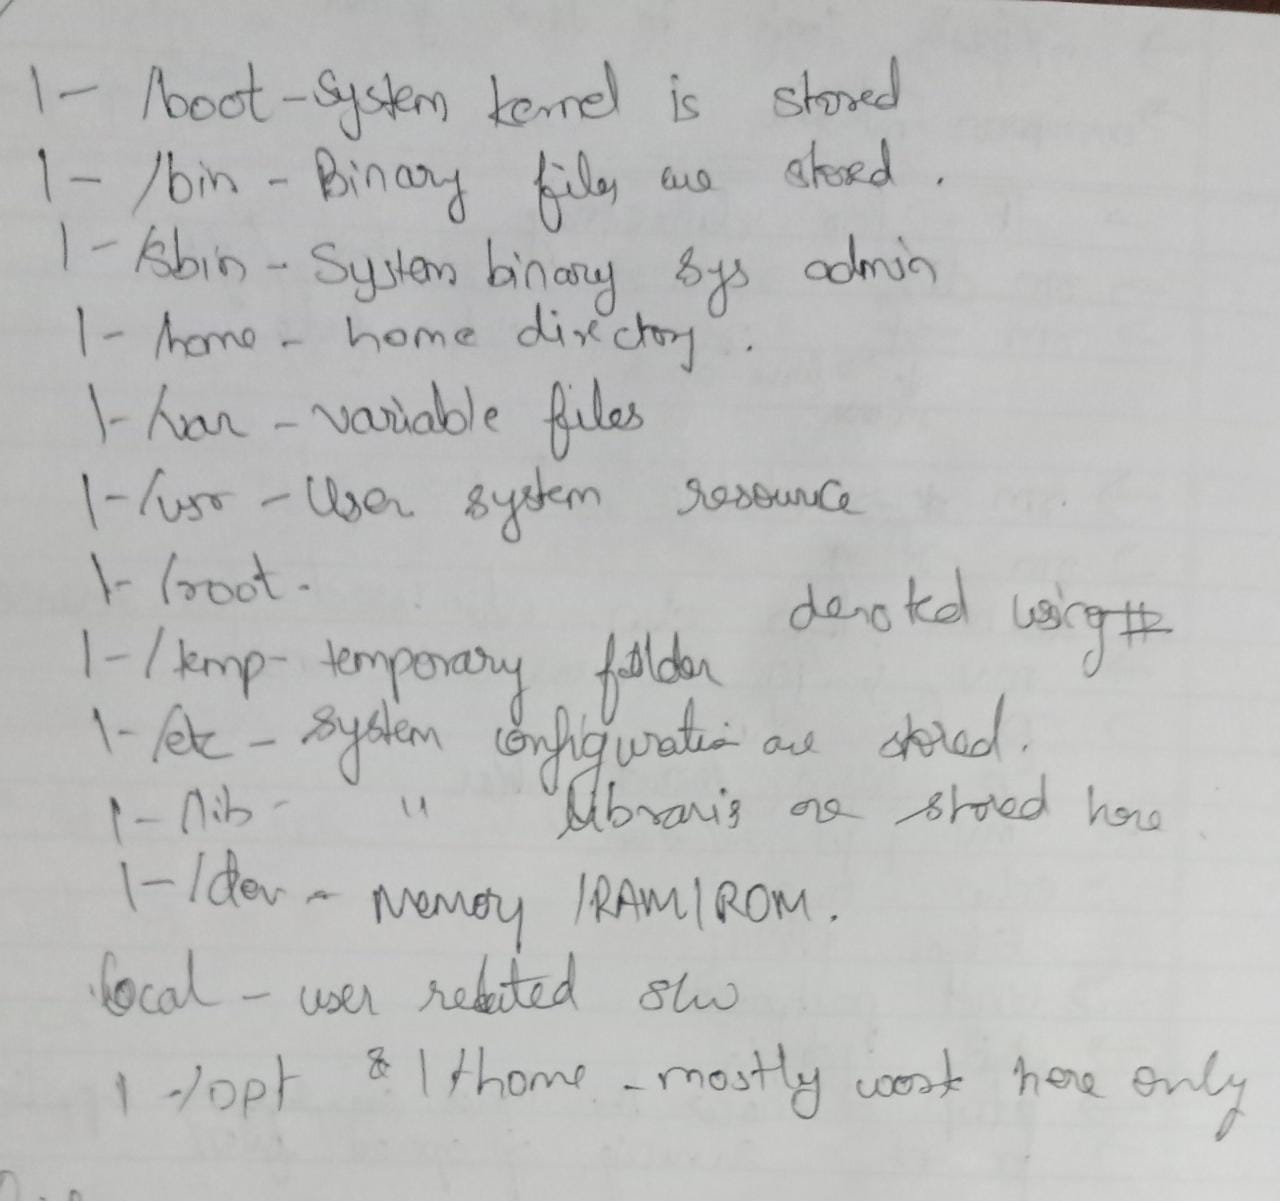 |- /boot - System kernel is stored
|- /bin - Binary files are stored.
|- /sbin - System binary sys admin
|- /home - home directory.
|- /var - variable files
|- /usr - User system resource
|- /root -
denoted using #
|- /temp - temporary folder
|- /etc - System configuration are stored.
|- /lib - " libraris are stored here
|- /dev - Memory /RAM/ROM.
local - user related s/w
|- /opt & /home - mostly work here only